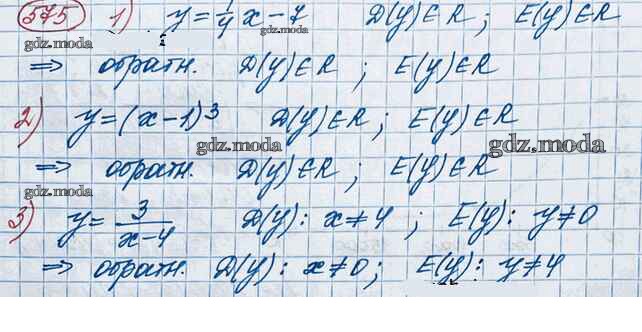 575 1) y = 1/4 x - 7 D(y) ∈ R ; E(y) ∈ R
gdz.moda gdz.moda
⇒ обратн. D(y) ∈ R ; E(y) ∈ R
gdz.moda
2) y = (x - 1)³ D(y) ∈ R ; E(y) ∈ R
gdz.moda gdz.moda
⇒ обратн. D(y) ∈ R ; E(y) ∈ R
gdz.moda
3) y = 3/(x - 4) D(y): x ≠ 4 ; E(y): y ≠ 0
⇒ обратн. D(y): x ≠ 0 ; E(y): y ≠ 4
gdz.moda